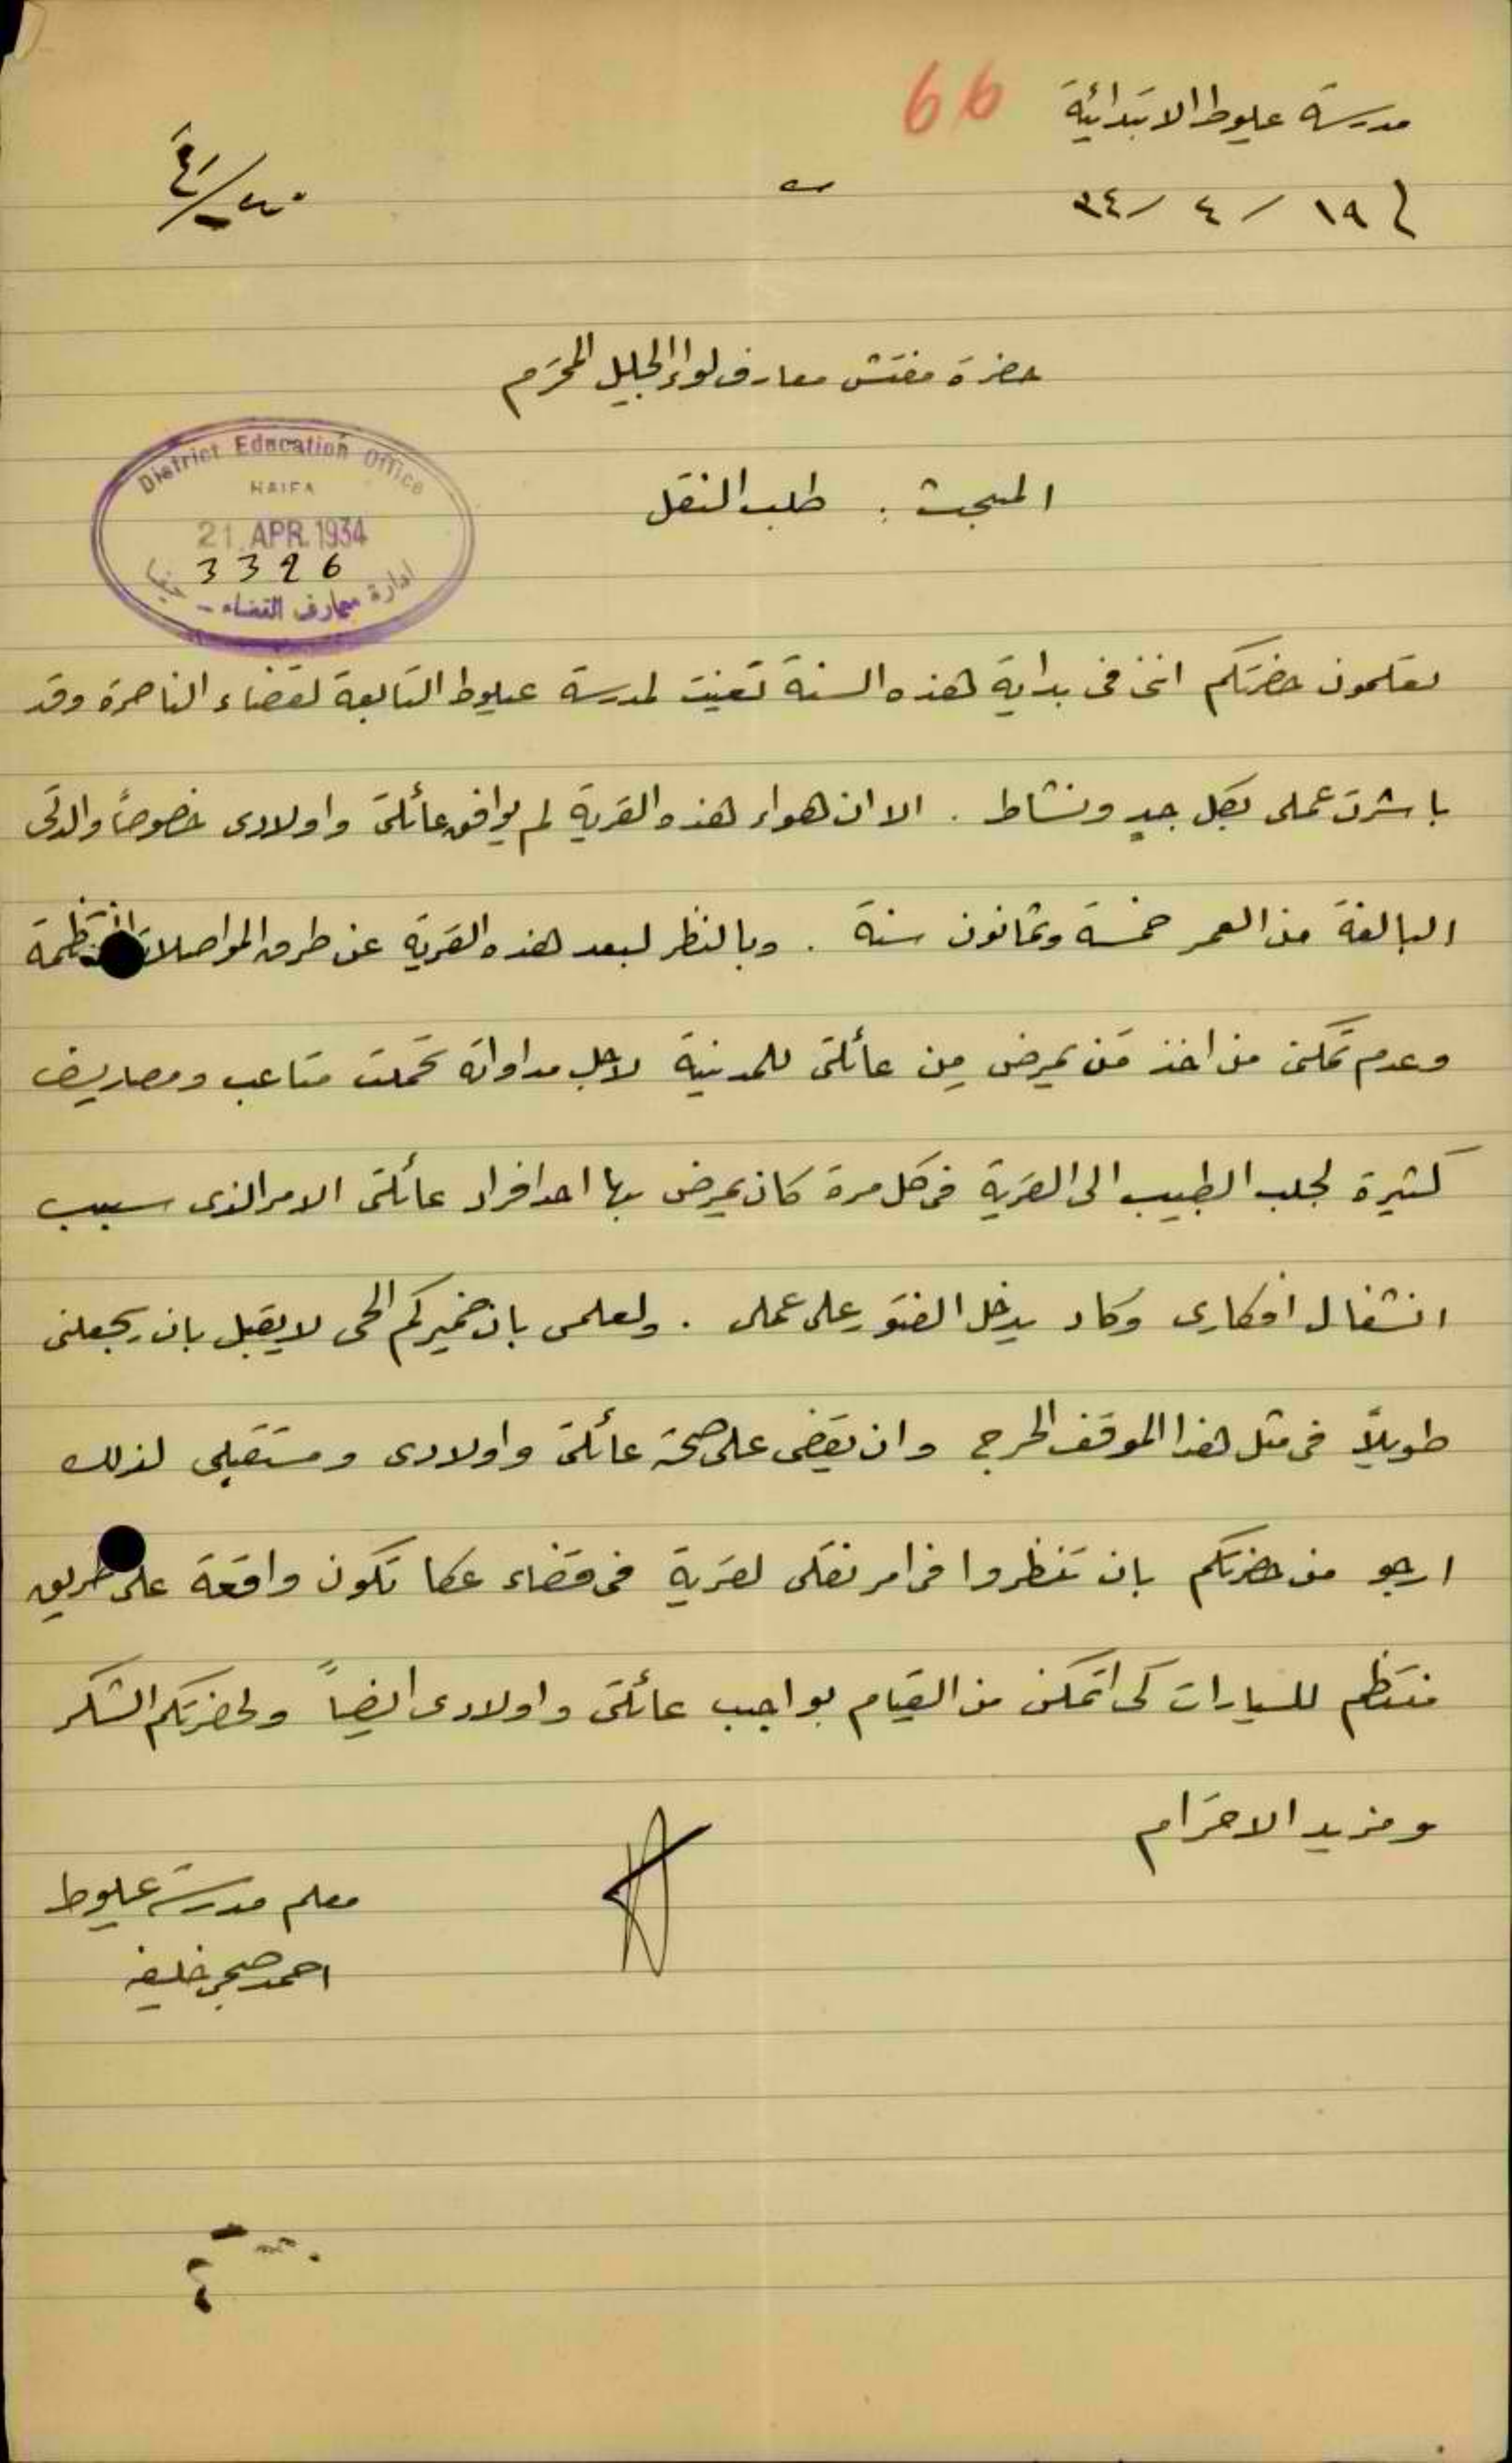 مدرسة عيلوط الابتدائية 66
١٩ / ٤ / ٣٤
حضرة مفتش معارف لواء الجليل المحترم
المبحث : طلب النقل
District Education Office
HAIFA
21 APR. 1934
3326
ادارة معارف القضاء - حيفا
تعلمون حضرتكم انني في بداية هذه السنة تعينت لمدرسة عيلوط التابعة لقضاء الناصرة وقد
باشرت عملي بكل جد ونشاط . الا ان هواء هذه القرية لم يوافق عائلتي واولادي خصوصاً والدتي
البالغة من العمر خمسة وثمانون سنة . وبالنظر لبعد هذه القرية عن طرق المواصلات المنتظمة
وعدم تمكني من اخذ من يمرض من عائلتي للمدينة لاجل مداواته تحملت متاعب ومصاريف
كثيرة لجلب الطبيب الى القرية في كل مرة كان يمرض بها احد افراد عائلتي الامر الذي سبب
انشغال افكاري وكاد يدخل الفتور على عملي . ولعلمي بان ضميركم الحي لا يقبل بان يجعلني
طويلاً في مثل هذا الموقف الحرج وان يقضي على صحة عائلتي واولادي ومستقبلي لذلك
ارجو من حضرتكم بان تنظروا في امر نقلي لقرية في قضاء عكا تكون واقعة على طريق
منتظم للسيارات كي اتمكن من القيام بواجب عائلتي واولادي ايضاً ولحضرتكم الشكر
ومزيد الاحترام
معلم مدرسة عيلوط
احمد صبحي خليفه